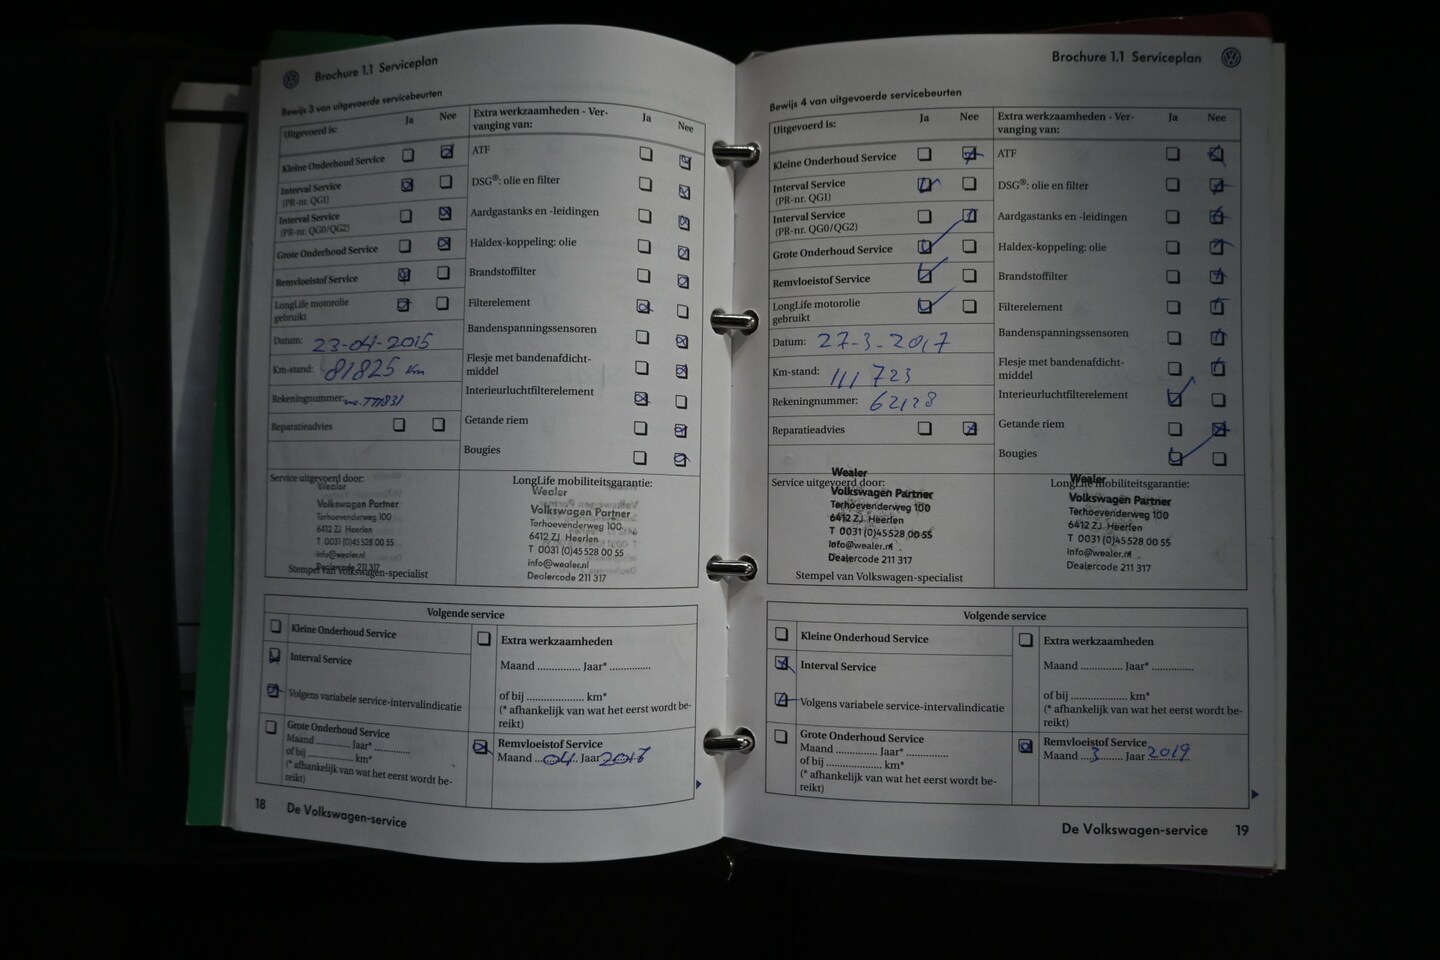 Brochure 1.1 Serviceplan
Bewijs 3 van uitgevoerde servicebeurten
Uitgevoerd is: Ja Nee
Kleine Onderhoud Service
Interval Service
(PR-nr. QG1)
Interval Service
(PR-nr. QG0/QG2)
Grote Onderhoud Service
Remvloeistof Service
LongLife motorolie
gebruikt
Datum: 23-04-2015
Km-stand: 81825 km
Rekeningnummer:
Reparatieadvies
Extra werkzaamheden - Ver-
vanging van: Ja Nee
ATF
DSG®: olie en filter
Aardgastanks en -leidingen
Haldex-koppeling: olie
Brandstoffilter
Filterelement
Bandenspanningssensoren
Flesje met bandenafdicht-
middel
Interieurluchtfilterelement
Getande riem
Bougies
Service uitgevoerd door:
Wealer
Volkswagen Partner
Terhoevenderweg 100
6412 ZJ Heerlen
T 0031 (0)45 528 00 55
info@wealer.nl
Dealercode 211 317
Stempel van Volkswagen-specialist
LongLife mobiliteitsgarantie:
Wealer
Volkswagen Partner
Terhoevenderweg 100
6412 ZJ Heerlen
T 0031 (0)45 528 00 55
info@wealer.nl
Dealercode 211 317
Volgende service
Kleine Onderhoud Service
Interval Service
Volgens variabele service-intervalindicatie
Grote Onderhoud Service
Maand ........... Jaar* ..............
of bij .................... km*
(* afhankelijk van wat het eerst wordt be-
reikt)
Extra werkzaamheden
Maand .............. Jaar* ..............
of bij .................... km*
(* afhankelijk van wat het eerst wordt be-
reikt)
Remvloeistof Service
Maand ...04... Jaar 2017
18 De Volkswagen-service
Brochure 1.1 Serviceplan
Bewijs 4 van uitgevoerde servicebeurten
Uitgevoerd is: Ja Nee
Kleine Onderhoud Service
Interval Service
(PR-nr. QG1)
Interval Service
(PR-nr. QG0/QG2)
Grote Onderhoud Service
Remvloeistof Service
LongLife motorolie
gebruikt
Datum: 27-3-2017
Km-stand: 111 723
Rekeningnummer: 62128
Reparatieadvies
Extra werkzaamheden - Ver-
vanging van: Ja Nee
ATF
DSG®: olie en filter
Aardgastanks en -leidingen
Haldex-koppeling: olie
Brandstoffilter
Filterelement
Bandenspanningssensoren
Flesje met bandenafdicht-
middel
Interieurluchtfilterelement
Getande riem
Bougies
Service uitgevoerd door:
Wealer
Volkswagen Partner
Terhoevenderweg 100
6412 ZJ Heerlen
T 0031 (0)45 528 00 55
info@wealer.nl
Dealercode 211 317
Stempel van Volkswagen-specialist
LongLife mobiliteitsgarantie:
Wealer
Volkswagen Partner
Terhoevenderweg 100
6412 ZJ Heerlen
T 0031 (0)45 528 00 55
info@wealer.nl
Dealercode 211 317
Volgende service
Kleine Onderhoud Service
Interval Service
Volgens variabele service-intervalindicatie
Grote Onderhoud Service
Maand .............. Jaar* ..............
of bij .................... km*
(* afhankelijk van wat het eerst wordt be-
reikt)
Extra werkzaamheden
Maand .............. Jaar* ..............
of bij .................... km*
(* afhankelijk van wat het eerst wordt be-
reikt)
Remvloeistof Service
Maand ...3... Jaar 2019
De Volkswagen-service 19